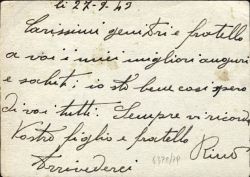 li 27-9-43
Carissimi genitori e fratello
a voi i miei migliori auguri
e saluti; io sto bene cosi spero
di voi tutti. Sempre vi ricordo
Vostro figlio e fratello
Rino
Arrivederci